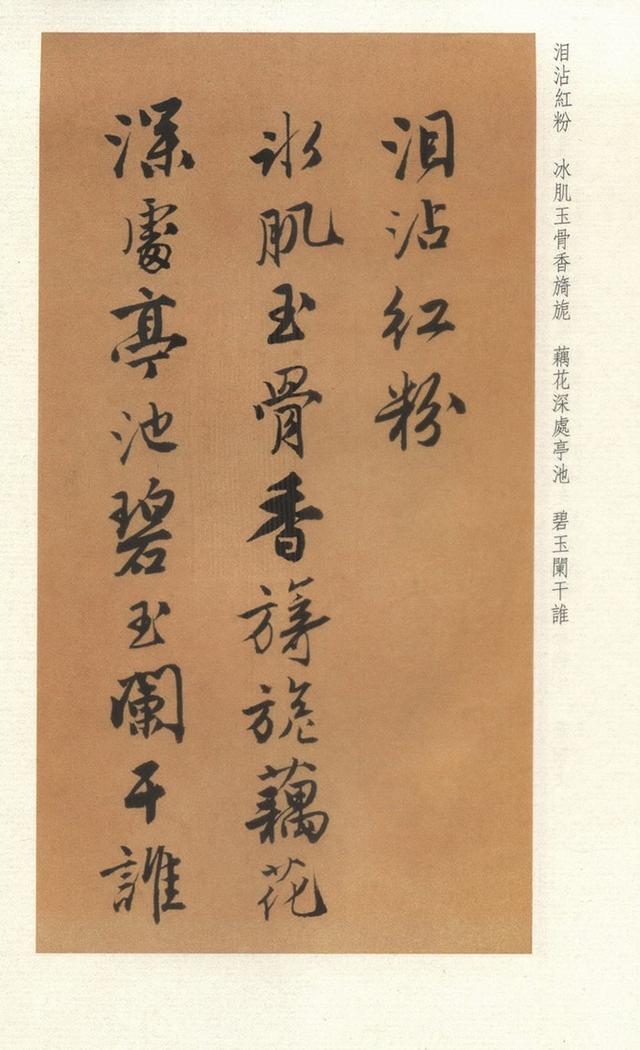 泪沾紅粉　冰肌玉骨香旖旎　藕花深處亭池　碧玉闌干誰
泪沾红粉
冰肌玉骨香旖旎藕花
深處亭池碧玉闌干誰